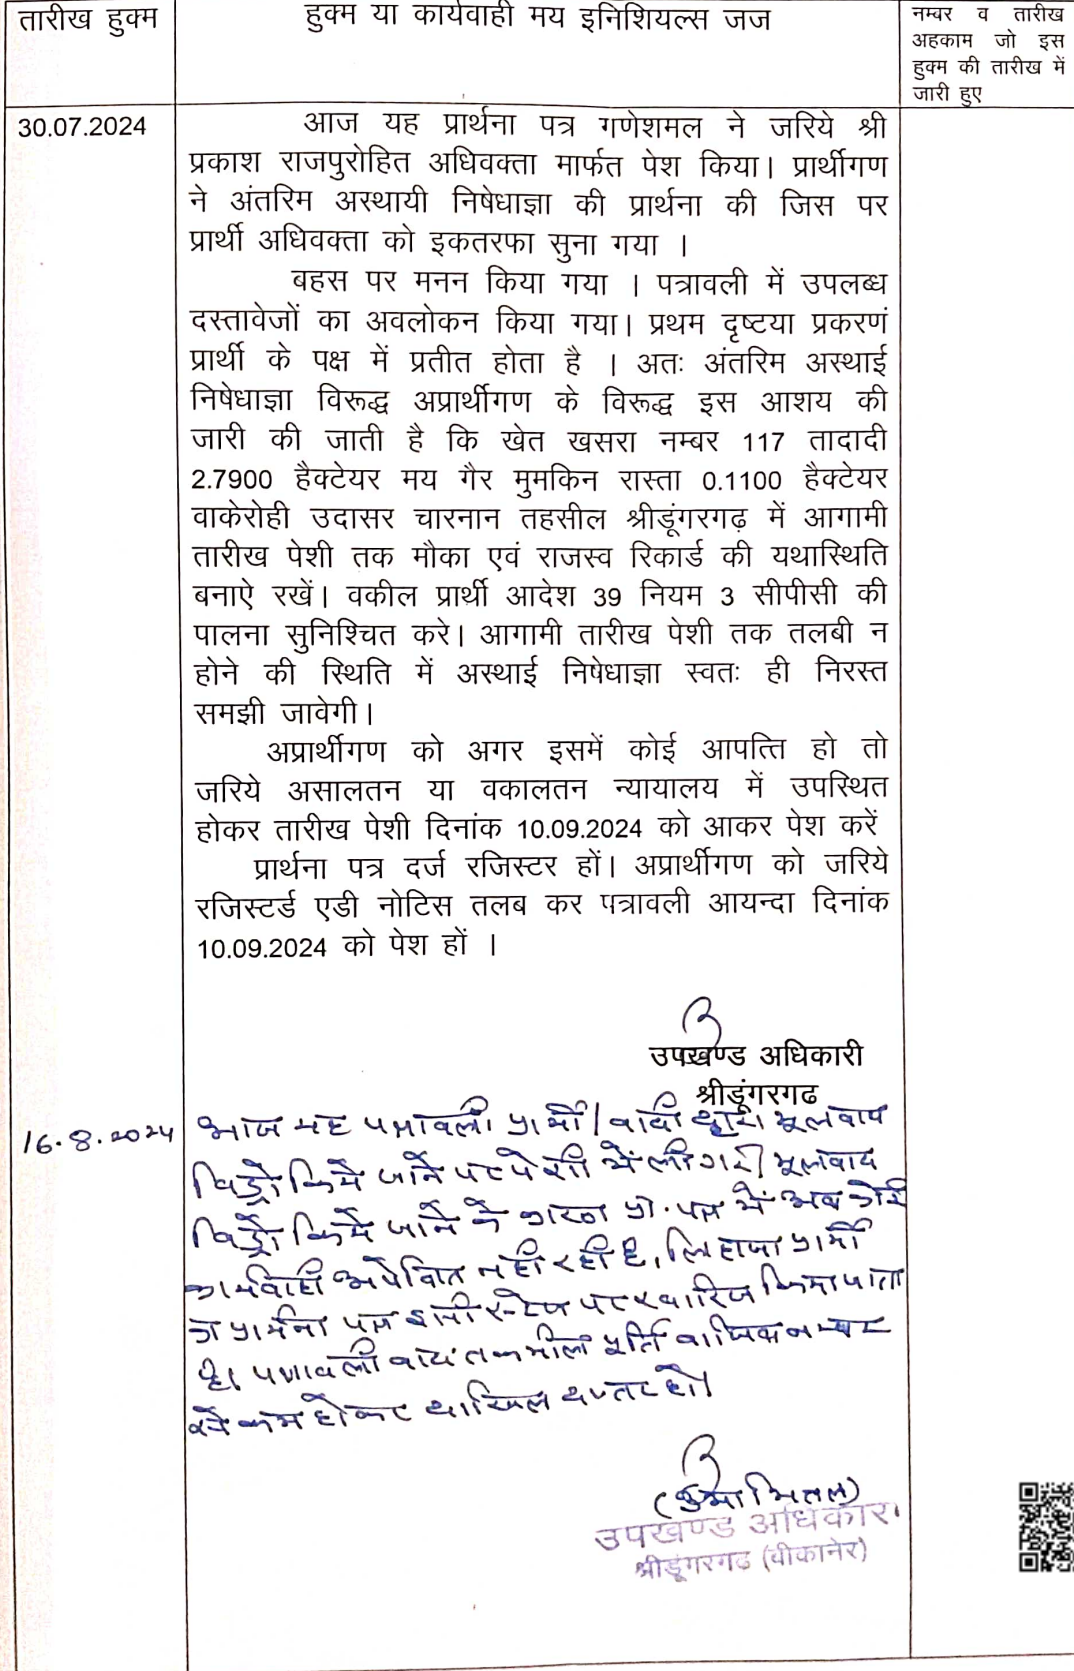 तारीख हुक्म
हुक्म या कार्यवाही मय इनिशियल्स जज
नम्बर व तारीख
अहकाम जो इस
हुक्म की तारीख में
जारी हुए
30.07.2024
आज यह प्रार्थना पत्र गणेशमल ने जरिये श्री
प्रकाश राजपुरोहित अधिवक्ता मार्फत पेश किया। प्रार्थीगण
ने अंतरिम अस्थायी निषेधाज्ञा की प्रार्थना की जिस पर
प्रार्थी अधिवक्ता को इकतरफा सुना गया ।
बहस पर मनन किया गया । पत्रावली में उपलब्ध
दस्तावेजों का अवलोकन किया गया। प्रथम दृष्टया प्रकरणं
प्रार्थी के पक्ष में प्रतीत होता है । अतः अंतरिम अस्थाई
निषेधाज्ञा विरूद्ध अप्रार्थीगण के विरूद्ध इस आशय की
जारी की जाती है कि खेत खसरा नम्बर 117 तादादी
2.7900 हैक्टेयर मय गैर मुमकिन रास्ता 0.1100 हैक्टेयर
वाकेरोही उदासर चारनान तहसील श्रीडूंगरगढ़ में आगामी
तारीख पेशी तक मौका एवं राजस्व रिकार्ड की यथास्थिति
बनाऐ रखें। वकील प्रार्थी आदेश 39 नियम 3 सीपीसी की
पालना सुनिश्चित करे। आगामी तारीख पेशी तक तलबी न
होने की स्थिति में अस्थाई निषेधाज्ञा स्वतः ही निरस्त
समझी जावेगी।
अप्रार्थीगण को अगर इसमें कोई आपत्ति हो तो
जरिये असालतन या वकालतन न्यायालय में उपस्थित
होकर तारीख पेशी दिनांक 10.09.2024 को आकर पेश करें
प्रार्थना पत्र दर्ज रजिस्टर हों। अप्रार्थीगण को जरिये
रजिस्टर्ड एडी नोटिस तलब कर पत्रावली आयन्दा दिनांक
10.09.2024 को पेश हों ।
उपखण्ड अधिकारी
श्रीडूंगरगढ
16.8.2024
आज यह पत्रावली प्रार्थी/वादी द्वारा मूलवाद
विड्रो किये जाने पर पेशी में ली गई। मूलवाद
विड्रौ किये जाने के कारण प्रा. पत्र में अब कोई
कार्यवाही अपेक्षित नहीं रही है, लिहाजा प्रार्थी
का प्रार्थना पत्र इसी स्टेज पर खारिज किया जाता
है। पत्रावली बाद तकमील पूर्ति नम्बर
से कम होकर दाखिल दफ्तर हो।
(उमा मित्तल)
उपखण्ड अधिकारी
श्रीडूंगरगढ (बीकानेर)